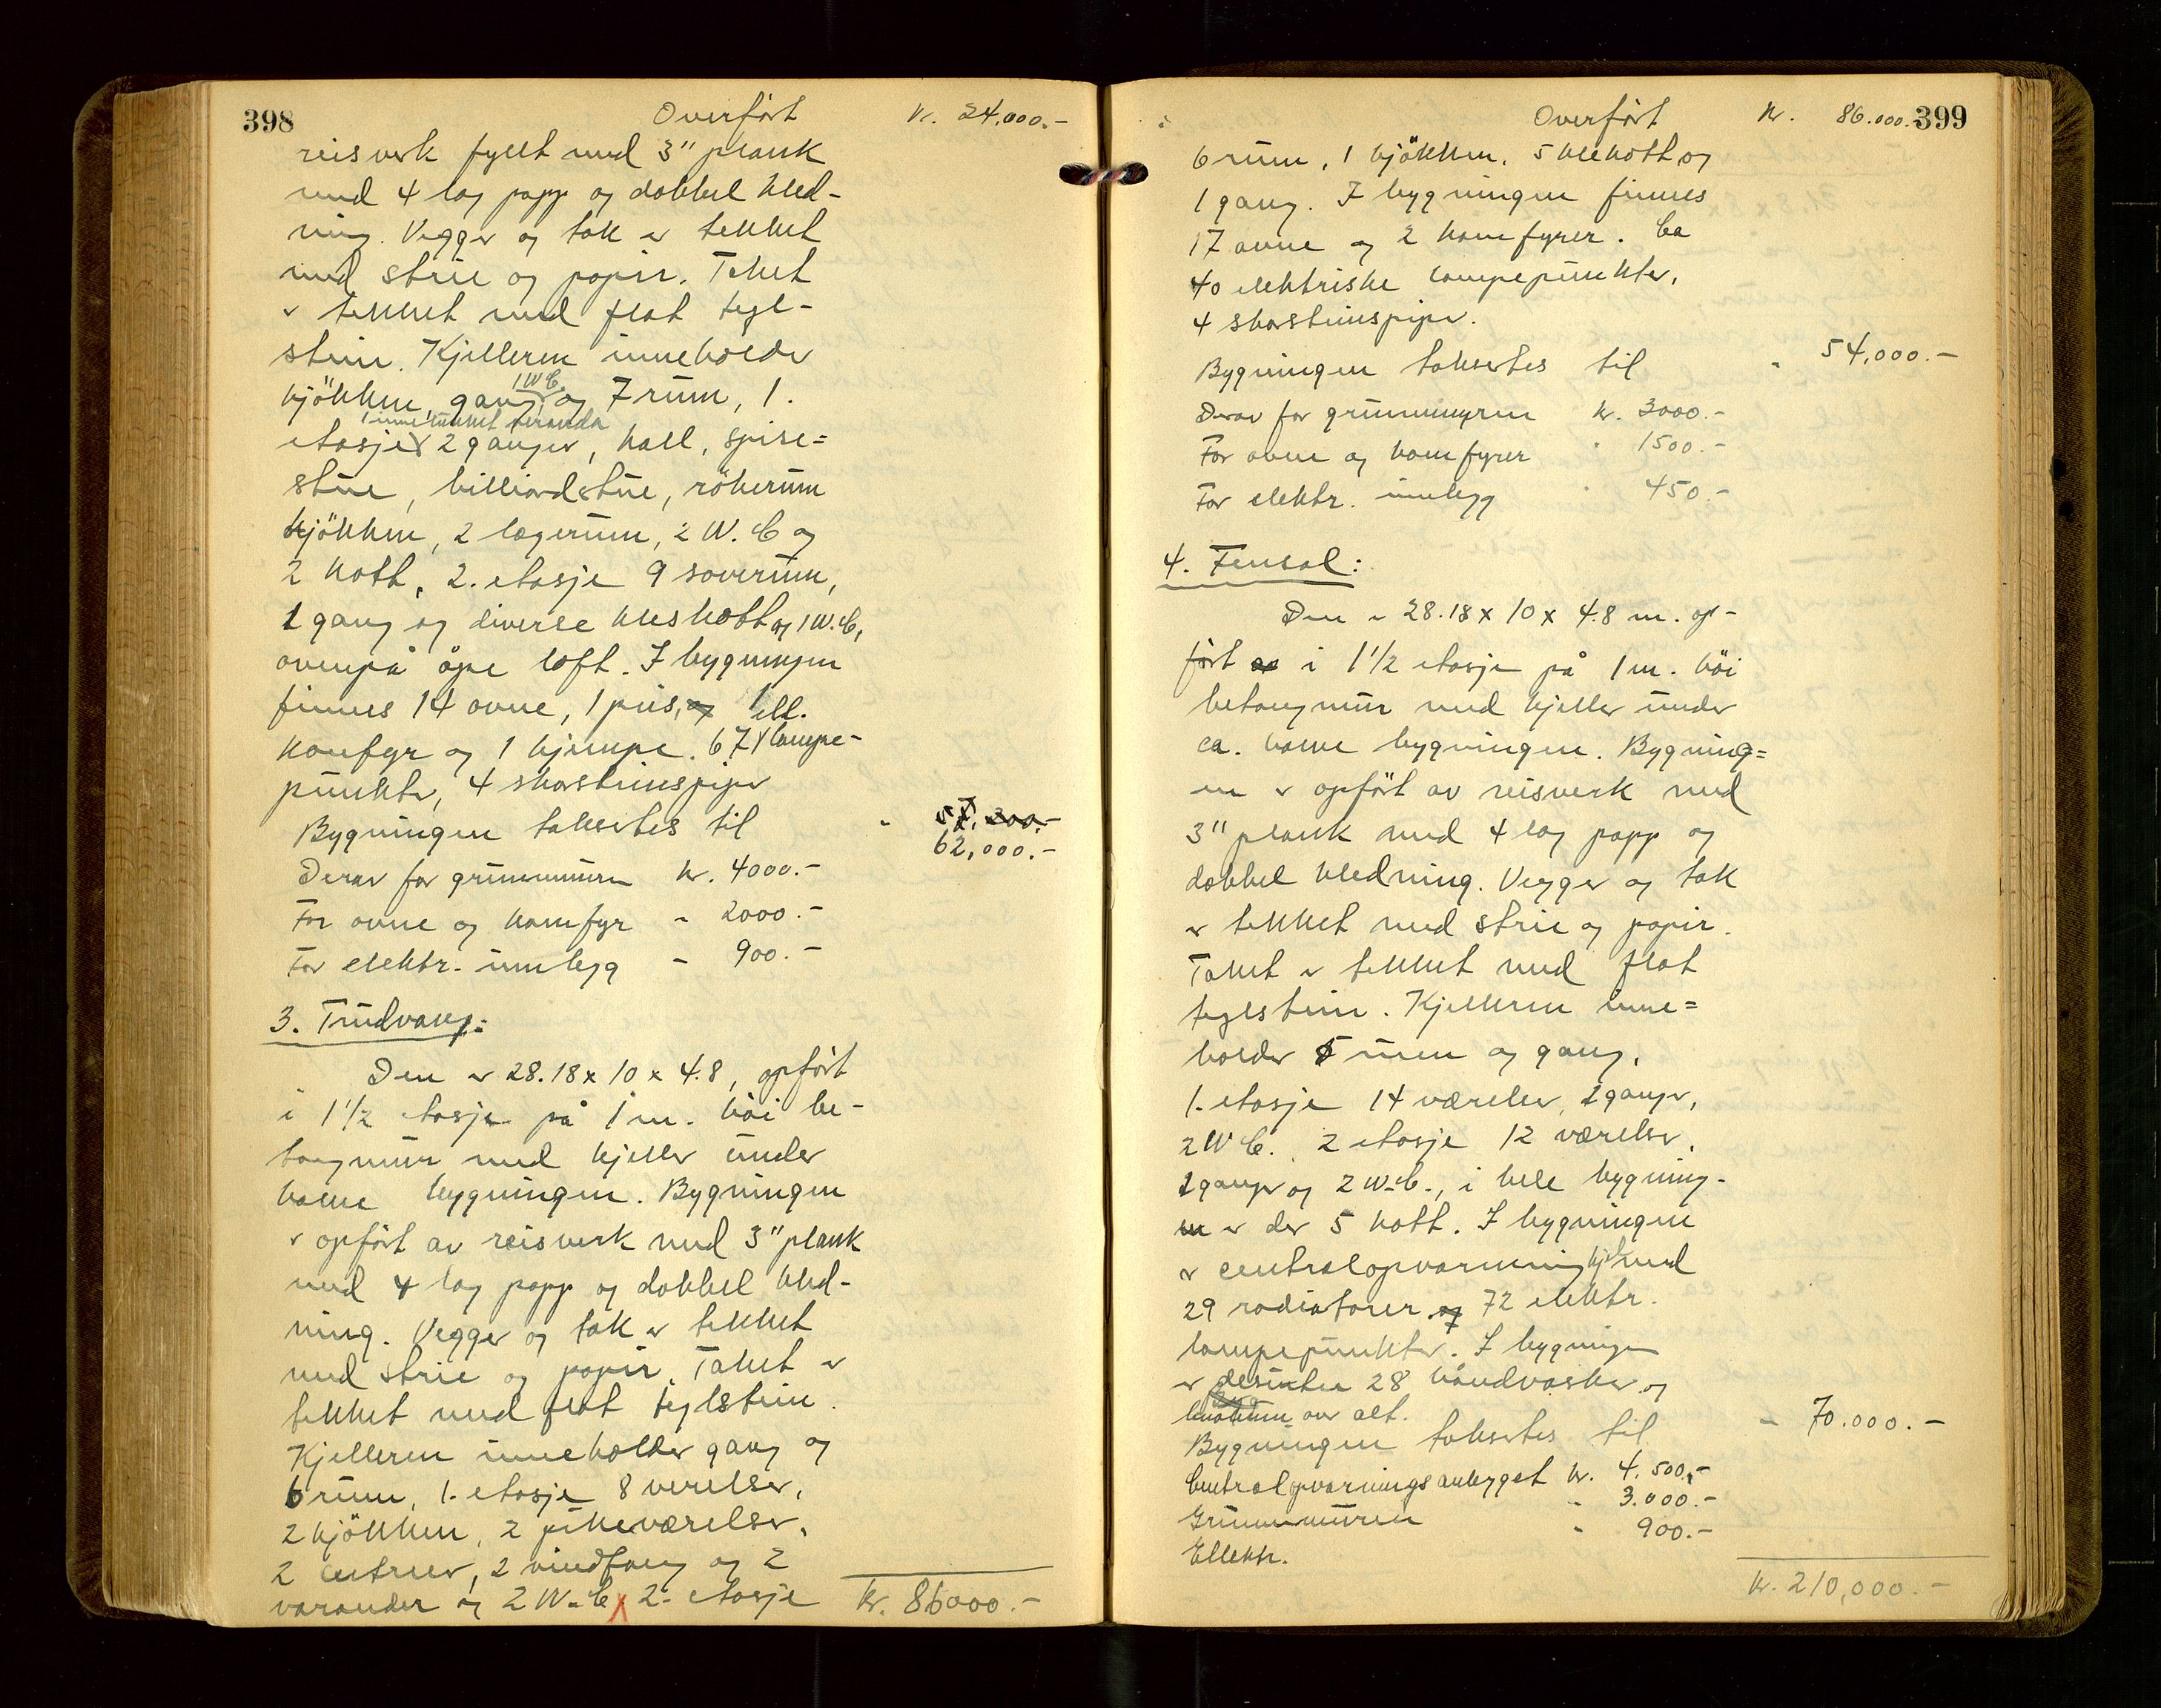 398
Overført Kr. 24,000.-
reisverk fyllt med 3" plank
med 4 lag papp og dobbel kled-
ning. Vegger og tak er tekket
med strie og papir. Taket
er tekket med flat tegl-
stein. Kjelleren inneholder
kjökken, gang, 1 W C. og 7 rum, 1.
etasje 1 innelukket veranda 2 ganger, hall, spise=
stue, billiardstue, rökerum
kjökken, 2 lagerum, 2 W. C og
2 kott, 2. etasje 9 soverum,
1 gang og diverse kleskott og 1 W. C,
ovenpå åpe loft. I bygningen
finnes 14 ovne, 1 peis, og 1 ell.
komfyr og 1 kjempe. 67 lampe-
punkter, 4 skorsteinspiper
Bygningen takseres til " 57,300.-
62,000.-
Derav for grunnmuren kr. 4000.-
For ovne og komfyr " 2000.-
For elektr. innlegg " 900.-
3. Trudvang:
Den er 28.18 x 10 x 4.8, opført
i 1 1/2 etasje på 1 m. höi be-
tongmur med kjeller under
halve bygningen. Bygningen
er opfört av reisverk med 3" plank
med 4 lag papp og dobbel kled-
ning. Vegger og tak er tekket
med strie og papir. Taket er
tekket med flat teglstein.
Kjelleren inneholder gang og
6 rum, 1. etasje 8 verelser,
2 kjökken, 2 pikeværelser,
2 entreer, 2 vindfang og 2
varander og 2 W. C, 2. etasje
Kr. 86000.-
399
Overført Kr. 86.000.-
6 rum, 1 kjökken, 5 klekott og
1 gang. I bygningen finnes
17 ovne og 2 komfyrer. Ca
40 elektriske lampepunkter,
4 skorsteinspiper.
Bygningen takseres til " 54,000.-
Derav for grunnmuren kr. 3000.-
For ovne og komfyrer " 1500.-
For elektr. innlegg " 450.-
4. Fensal:
Den er 28.18 x 10 x 4.8 m. op-
fört i 1 1/2 etasje på 1 m. höi
betongmur med kjeller under
ca. halve bygningen. Bygning=
en er opfört av reisverk med
3" plank med 4 lag papp og
dobbel kledning. Vegger og tak
er tekket med strie og papir.
Taket er tekket med flat
teglstein. Kjelleren inne=
holder 5 rum og gang,
1. etasje 14 værelser, 2 ganger,
2 W C. 2 etasje 12 værelser,
2 ganger og 2 W. C., i hele bygning-
en er der 5 kott. I bygningen
er centralopvarming kjel med
29 radiatorer og 72 elektr.
lampepunkter. I bygningen
er desuten 28 håndvasker og
linoleum over alt.
Bygningen takseres til " 70.000.-
Centralopvarmingsanlegget kr. 4.500.-
Grunnmuren " 3.000.-
Ellektr. " 900.-
Kr. 210,000.-